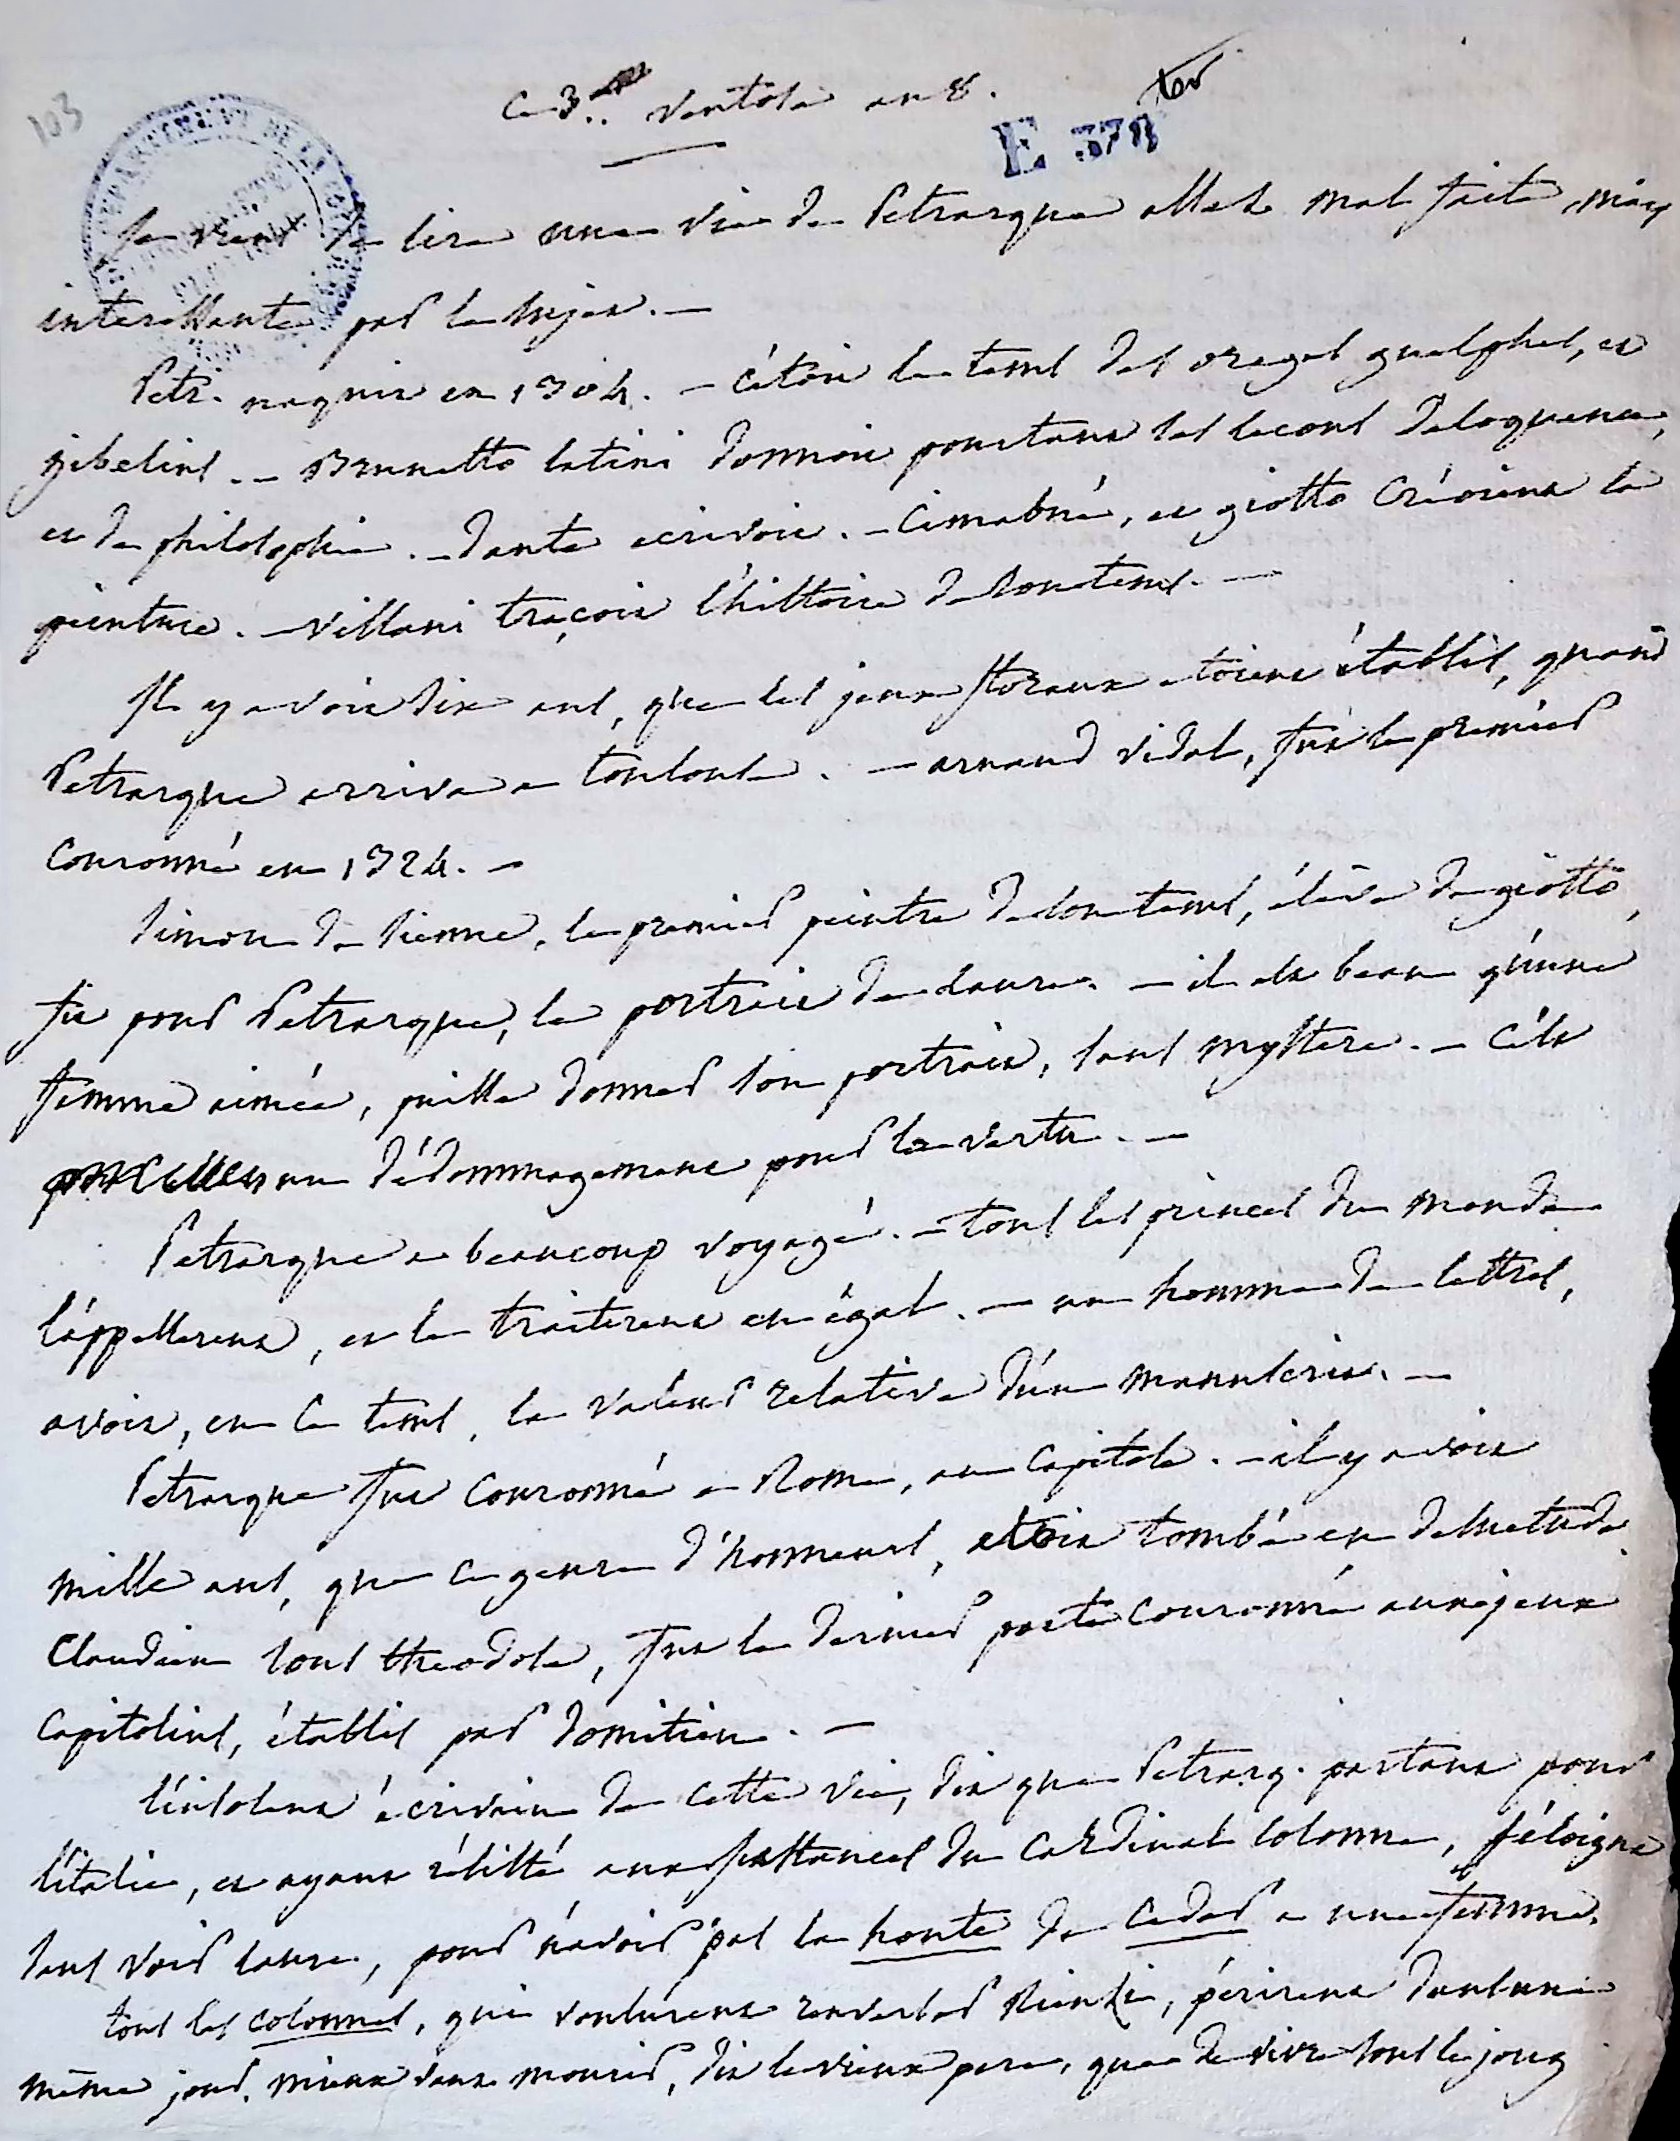 103
Ce 3.. Ventose an 8.
E 378 ter
Je viens de lire une vie de Petrarque assez mal faite, mais
interessante par le sujet. —
Petr. naquit en 1304. — C'étoit le tems des orages guelphes, et
gibelins. — Brunetto latini donnoit pourtant des lecons d'eloquence,
et de philosophie. — Dante ecrivoit. — Cimabué, et giotto créoient la
peinture. — Villani traçoit l'histoire de son tems. —
Il y avoit dix ans, que les jeux floraux etoient établis, quand
Petrarque arriva a toulouse. — arnaud Vidal, fut le premier
couronné en 1324. —
Simon de Sienne, le premier peintre de son tems, éleve de giotto,
fit pour Petrarque, le portrait de Laure. — il est beau qu'une
femme aimée, puisse donner son portrait, sans mystere. — C'est
un dédommagement pour la vertu. —
Petrarque a beaucoup voyagé. — tous les princes du monde
l'appellerent, et le traiterent en égal. — un homme de lettres,
avoit, en ce tems, la valeur relative d'un manuscrit. —
Petrarque fut couronné a Rome, au Capitole. — il y avoit
mille ans, que ce genre d'honneurs, etoit tombé en desuetude.
Claudien sous theodose, fut le dernier poete couronné aux jeux
Capitolins, établis par Domitien. —
L'insolent écrivain de cette vie, dit que Petrarq. partant pour
l'italie, et ayant résisté aux instances du Cardinal Colonne, s'éloigna
sans voir laure, pour n'avoir pas la honte de ceder a une femme.
tous les colonnes, qui voulurent renverser Rienzi, périrent dans un
même jour. mieux vaut mourir, dit le vieux pere, que de vivre sous le joug